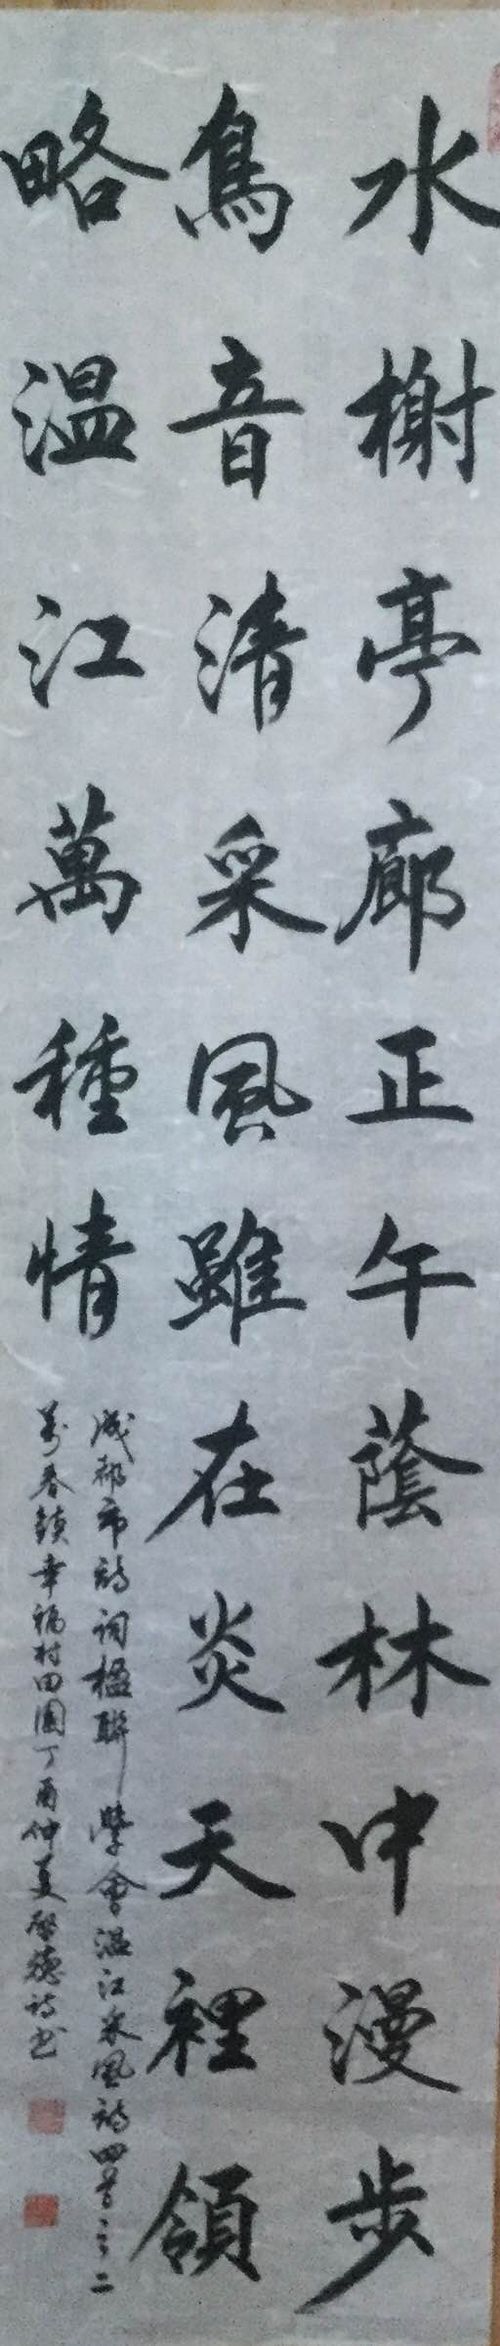 水榭亭廊正午蔭林中漫步
鳥音清采風雖在炎天裡領
略温江萬種情
成都市詩詞楹聯學會温江采風詩四首之二
萬春鎮幸福村田園丁酉仲夏啓德詩书